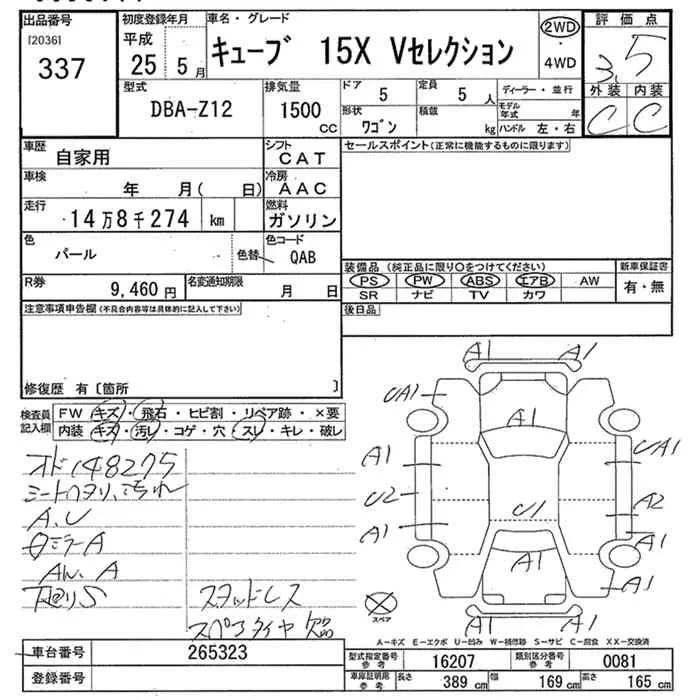 出品番号
[2036]
337
初度登録年月
平成
25 5月
車名・グレード
キューブ 15X Vセレクション
2WD
・
4WD
評価点
3.5
外装 内装
C C
型式
DBA-Z12
排気量
1500
CC
ドア
5
定員
5人
ディーラー・並行
形状
ワゴン
積載
kg
モデル年式
年
ハンドル 左・右
車歴
自家用
シフト
CAT
車検
年 月( 日)
冷房
AAC
走行
14万8千274 km
燃料
ガソリン
色
パール
色替
色コード
QAB
R券
9,460円
名変通知期限
月 日
セールスポイント(正常に機能するものに限ります)
装備品 (純正品に限り○をつけてください)
新車保証書
PS PW ABS エアB AW
有・無
SR ナビ TV カワ
後日品
注意事項申告欄(不具合内容等は具体的に記入して下さい)
修復歴 有〔箇所 〕
検査員記入欄
FW キズ・飛石・ヒビ割・リペア跡・×要
内装 キズ・汚レ・コゲ・穴・スレ・キレ・破レ
オド148275
シートヘタリ、汚れ
A.U
ミラーA
A
下廻りS
スタッドレス
スペアタイヤ欠品
A1 A1
UA1
A1
A1
UA1
U2
A2
A1
U1
A1
A1
A1
A1 A1
スペア
A-キズ E-エクボ U-凹み W-補修跡 S-サビ C-腐食 XX-交換済
車台番号
265323
登録番号
型式指定番号
参考
16207
類別区分番号
参考
0081
車庫証明用
参考
長さ
389 cm
幅
169 cm
高さ
165 cm